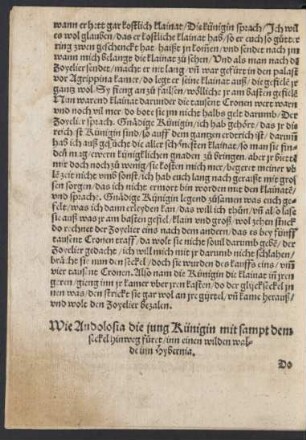 wann er hett gar kostlich klainat / Die künigin sprach / Ich wil
es wol glauben / das er kostliche klainat hab / so er euch so gute
ring zwen geschenckt hat haißt jn komen / vnd sendet nach jm
wann mich belange die klainat zu sehen / Vnd als man nach dē
Zoyelier sendet / macht er nit lang / vn war gefürt in den palast
vor Agrippina kamer / do legt er seine klainat auß / die gefiele jr
gantz wol / Sy fieng an zu failsen / wölliche jr am basten gefielē
Nun warend klainat darunder die tausent Cronen wert warn
vnd noch vil mer / do bott sie jm nicht halbs gelt darumb / Der
Zoyelier sprach / Gnädige Künigin / ich hab gehört / das jr die
reich ist Künigin sind / so auff dem gantzen erderich ist / darum
hab ich auß gesuche die aller schönesten klainat / so man sie fin
den mag ewern künigklichen gnaden zu bringen / aber jr bütt
mir doch noch zu wenig / sie kosten mich mer / begeret meiner vb
le zeit nicht vmb sonst / ich hab euch lang nach geraißt mit gros
sen sorgen / das ich nicht ermort bin worden mit den klainatē /
vnd sprach / Gnädige Künigin legend züsamen was euch ge-
felt / was ich dann erleyden kan / das will ich thun / vn also lase
sie auß was jr am basten gefiel / klain vnd groß / wol zehen stuck
do rechnet der Zoyelier eins nach dem andern / das es bey fünff
tausent Cronen traff / da wolt sie nicht souil darumb gebē / der
Zoyelier gedachte / ich will mich nit jr darumb nicht schlahen /
brächt sie nun den seckel / doch so wurden des kauffs eins / vmb
vier tausent Cronen. Also nam die Künigin die klainat in jren
geren / gieng inn jr kamer vber jren kasten / do der glücksseckel jn
nen was / den strickt sie gar wol an jr gürtel / vn kame herauß /
vnd wolt den Zoyelier bezalen.
Wie Andolosia die jung Künigin mit sampt dem
seckel hinweg füret / inn einen wilden wal-
de inn Hybernia.
Do